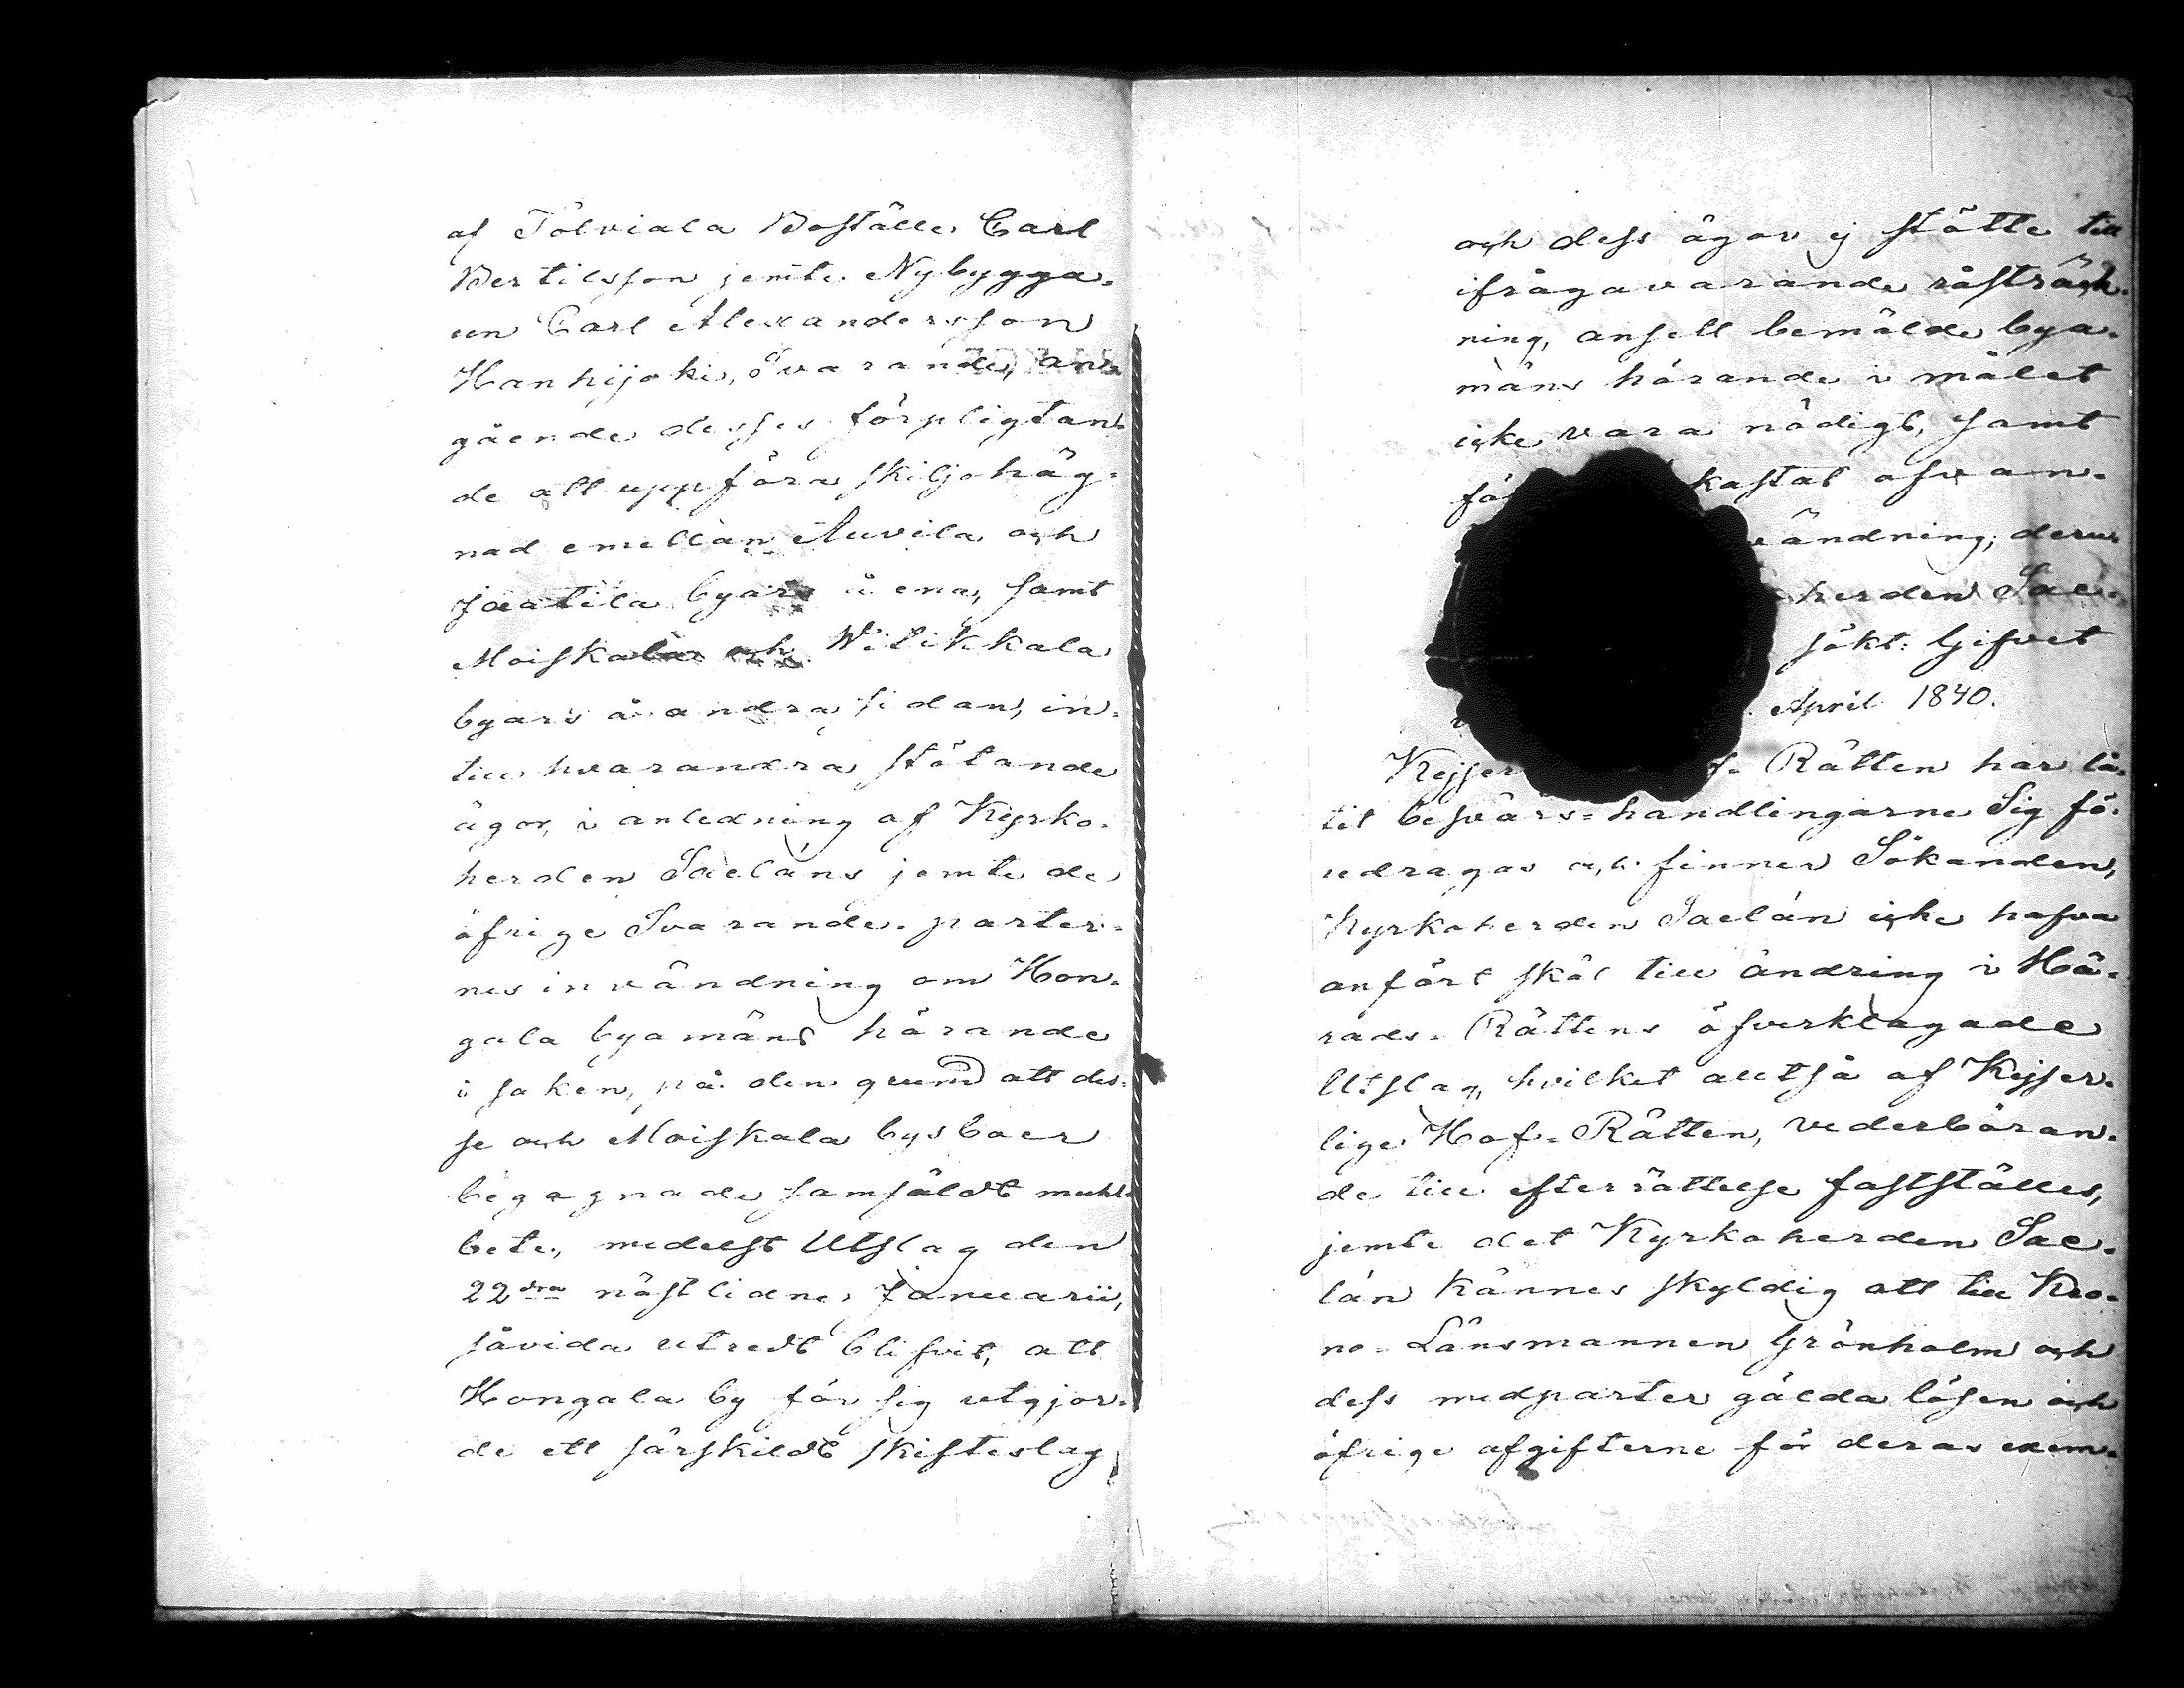 af Tölviala Boställe, Carl
Bertilsson jemte Nybygga-
ren Carl Alexandersson
Hanhijoki, Svarande, an-
gående desses förpligtan-
de att uppföra skiljohäg-
nad emellan Auvila och
Jaatila byars å ena, samt
Moiskala och Wilikkala
byars å andra sidan, in-
till hvarandra stötande
ägor, i anledning af Kyrko-
herden Saeláns jemte de
öfrige Svarande-parter-
nes invändning om Hon-
gala byamäns hörande
i saken, på den grund att des-
se och Moiskala bysboer
begagnade samfäldt muhl-
bete, medelst Utslag den
22dra nästlidne Januarii,
såvida utredt blifvit, att
Hongala by för sig utgjor-
de ett särskildt skifteslag
och dess ägor ej stötte till
ifrågavarande råsträck-
ning, ansett bemälde bya-
mäns hörande i målet
icke vara nödigt, samt
för kastat ofvan-
vändning; derur
herden Sae-
sökt: Gifvet
April 1840.
Kejser f- Rätten har lå-
tit besvärs-handlingarne Sig fö-
redragas och finner Sökanden,
Kyrkoherden Saelán icke hafva
anfört skäl till ändring i Hä-
rads-Rättens öfverklagade
Utslag, hvilket alltså af Kejser-
lige Hof-Rätten, vederböran-
de till efterrättelse fastställes,
jemte det Kyrkoherden Sae-
lán kännes skyldig att till Kro-
no-Länsmannen Grönholm och
dess medparter gälda lösen och
öfrige afgifterne för deras exem-